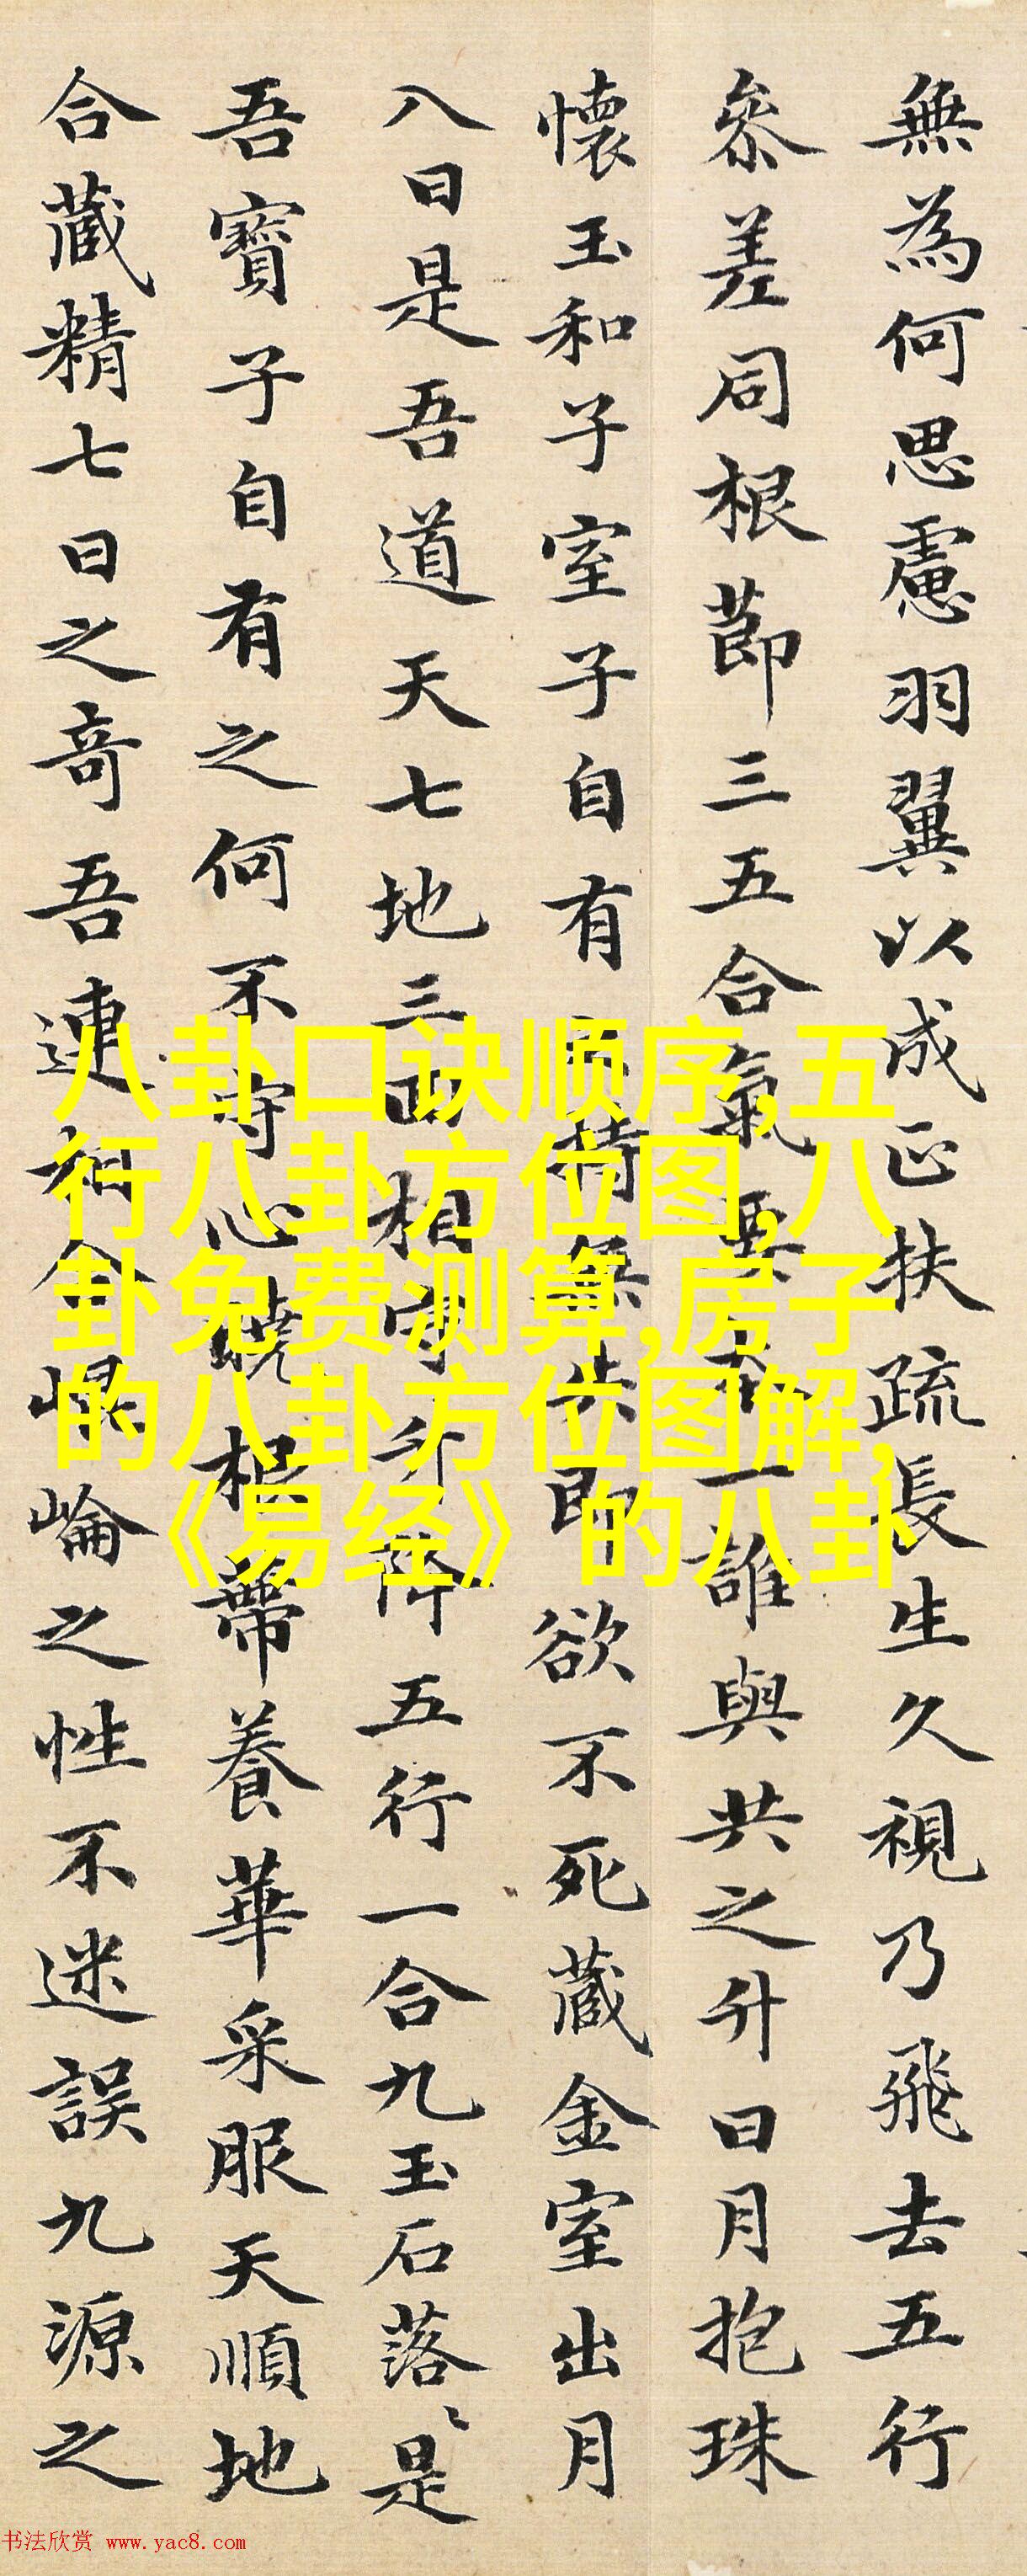 無為何思慮羽翼以成正扶疏長生久視乃飛去五行
參差同根莭三五合氣要本一誰與共之升日月抱珠
懷玉和子室子自有持無失即欲不死藏金室出月
八日是吾道天七地三相守升降五行一合九玉石落〻是
吾寶子自有之何不守心曉根蔕養華采服天順地
合藏精七日之奇吾連相合崐崘之性不迷誤九源之
八卦口诀顺序,五
行八卦方位图,八
卦免费测算,房子
的八卦方位图解,
《易经》的八卦
书法欣赏 www.yac8.com